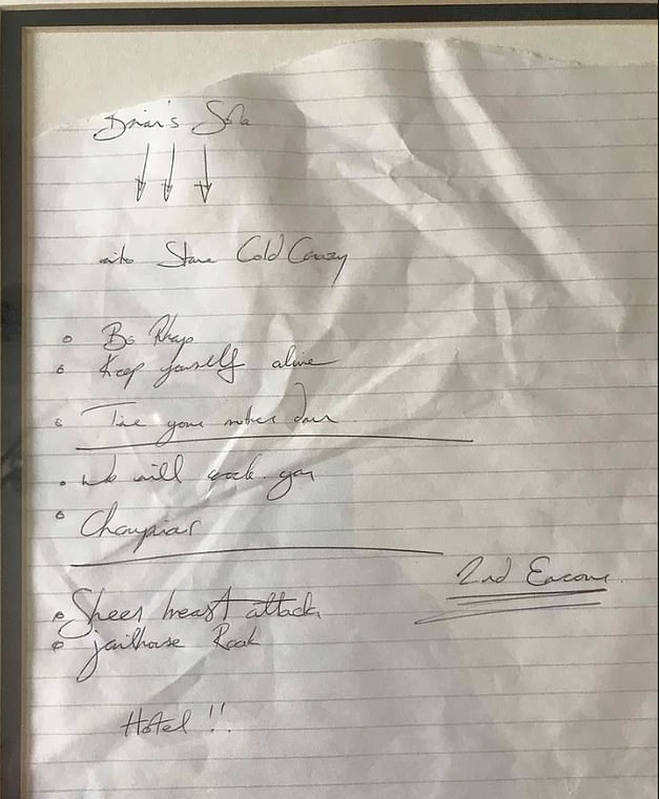 Brian's Solo
into Stone Cold Crazy
Bo Rhap
Keep yourself alive
Tie your mother down
We will rock you
Champions
2nd Encore.
Sheer heart attack
jailhouse Rock
Hotel !!